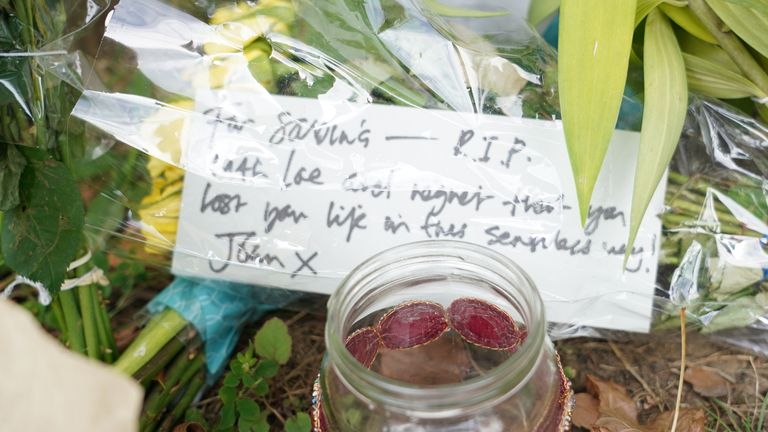 For Sabina — R.I.P.
With love and regret that you
lost your life in this senseless way!
John x